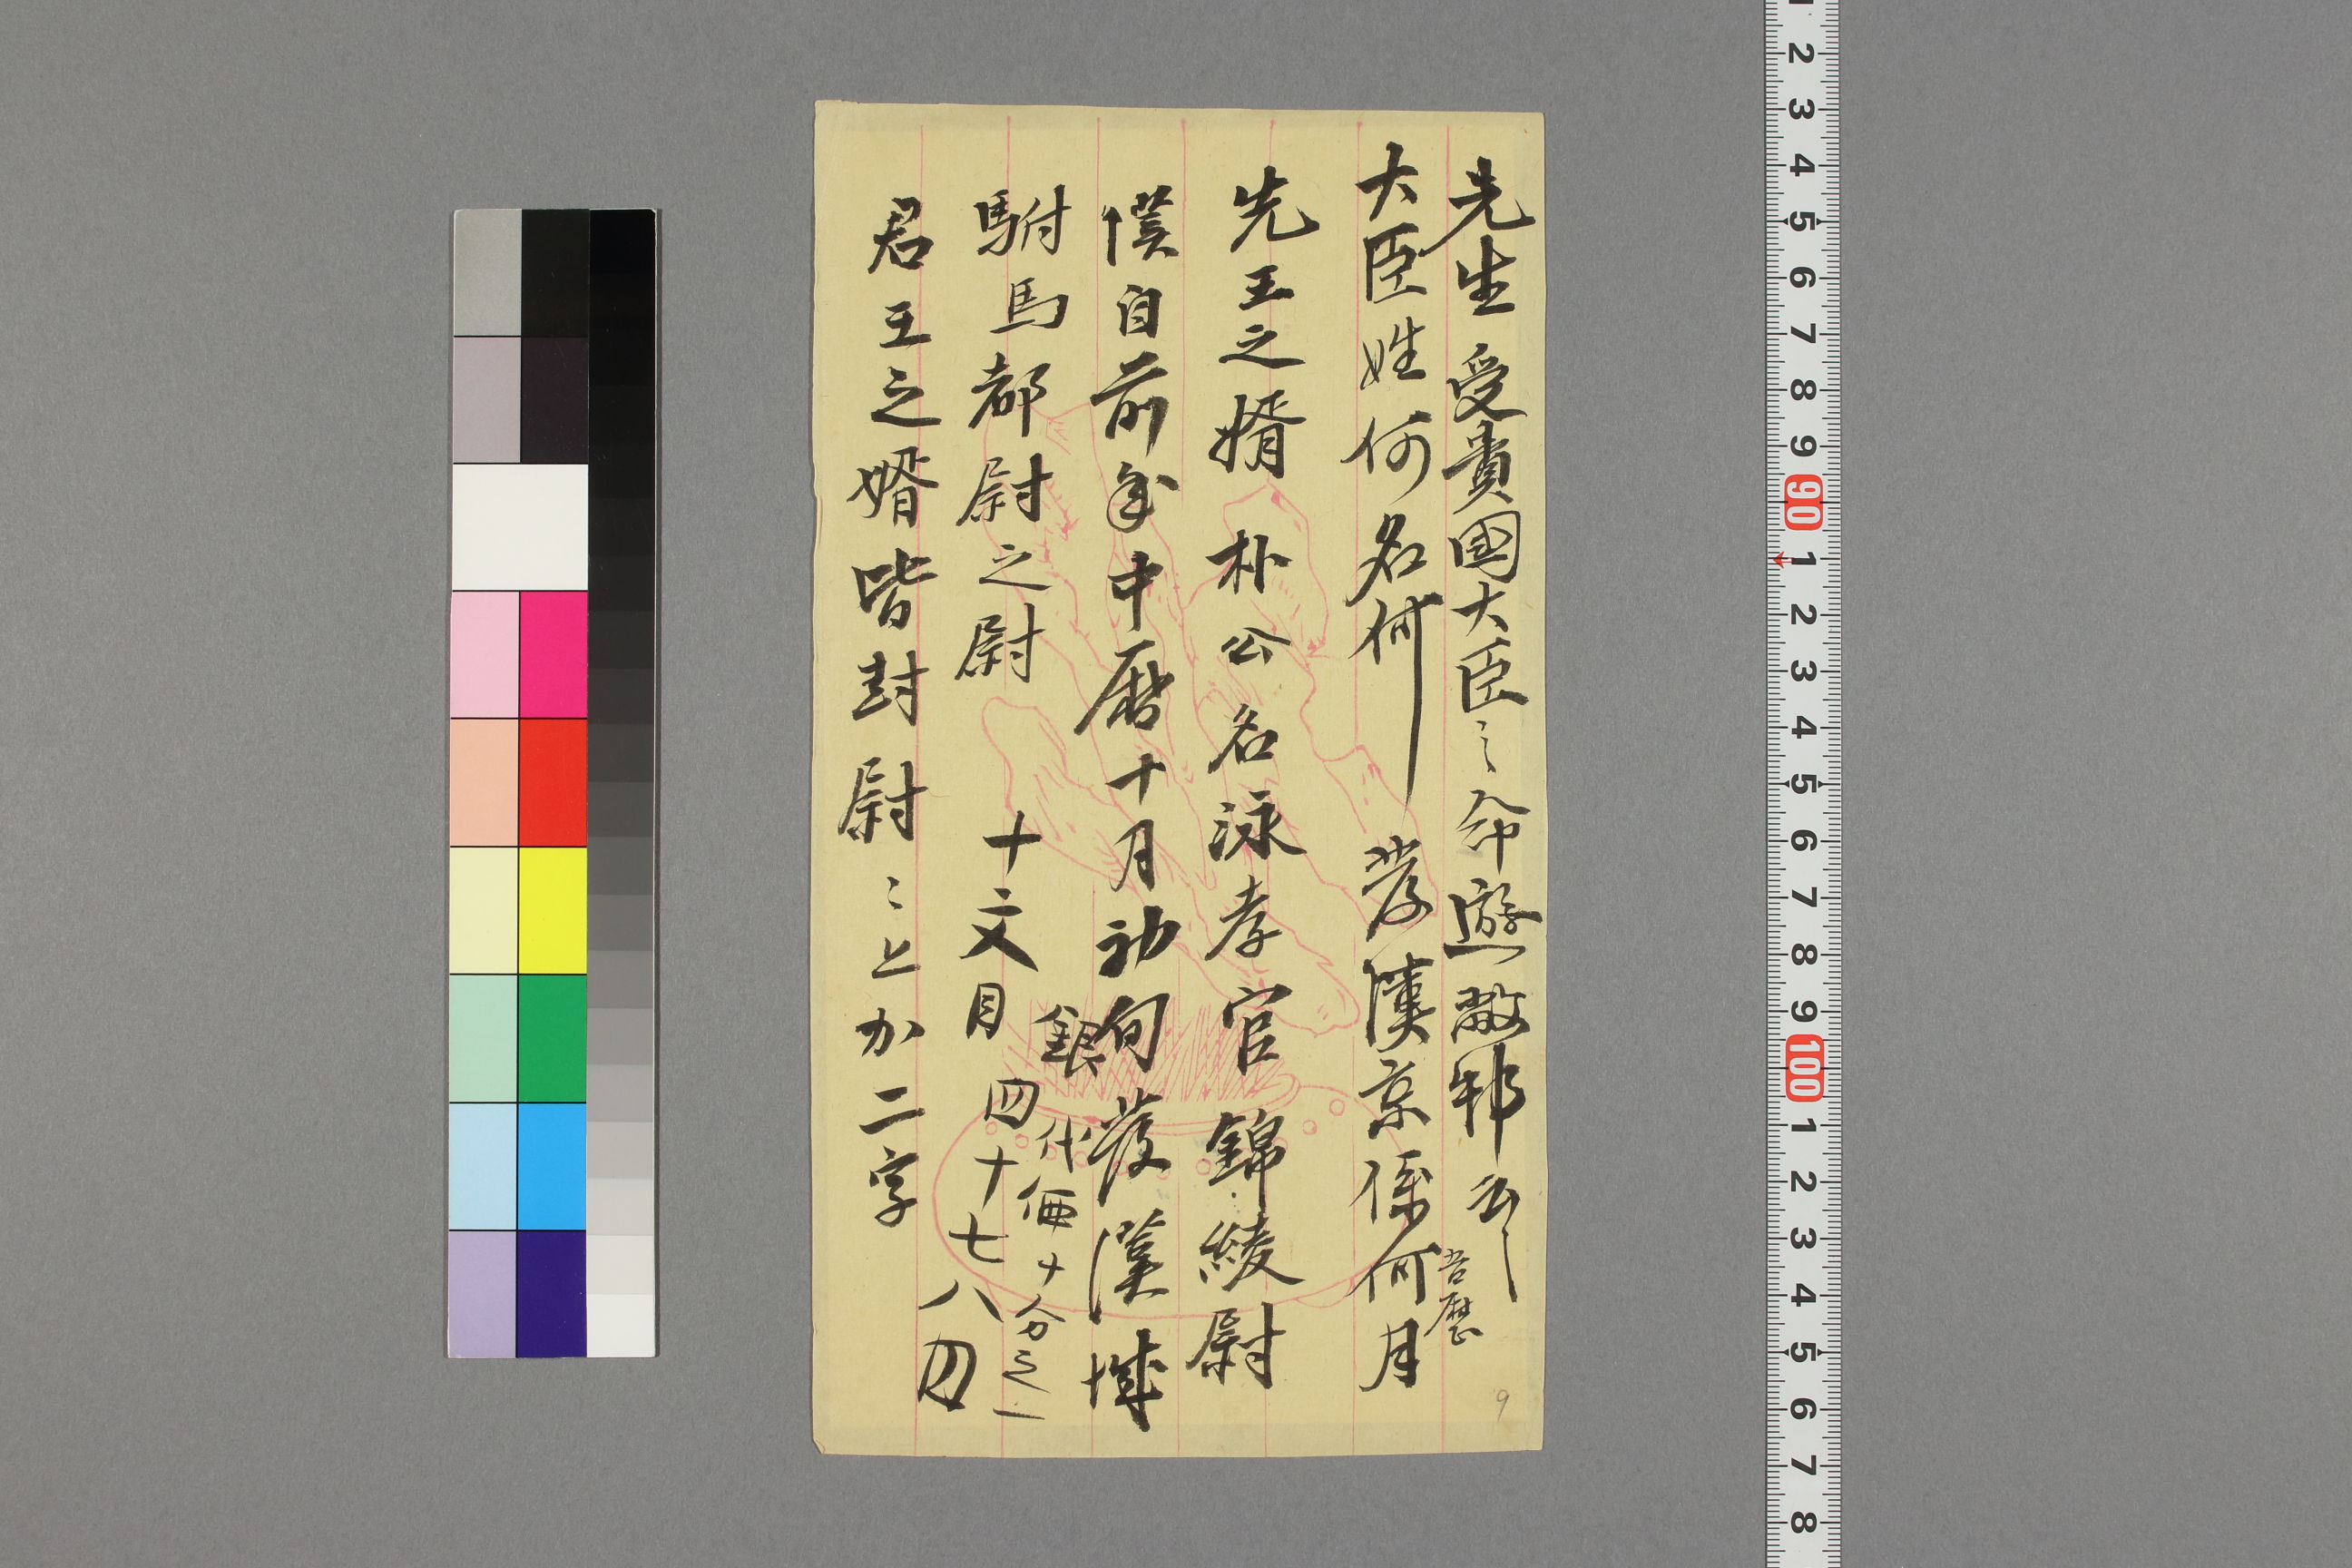 先生受貴國大臣之命遊敝邦云〻
大臣姓何名何 發漢京係何月
吾曆
先王之婿 朴公名泳孝官錦綾尉
僕自前年中曆十月初旬發漢城
駙馬都尉之尉 十文目 四十七八刄
銀代価十分之一
君王之婿皆封尉〻上加二字
9
1 2 3 4 5 6 7 8 9 90 1 2 3 4 5 6 7 8 9 100 1 2 3 4 5 6 7 8